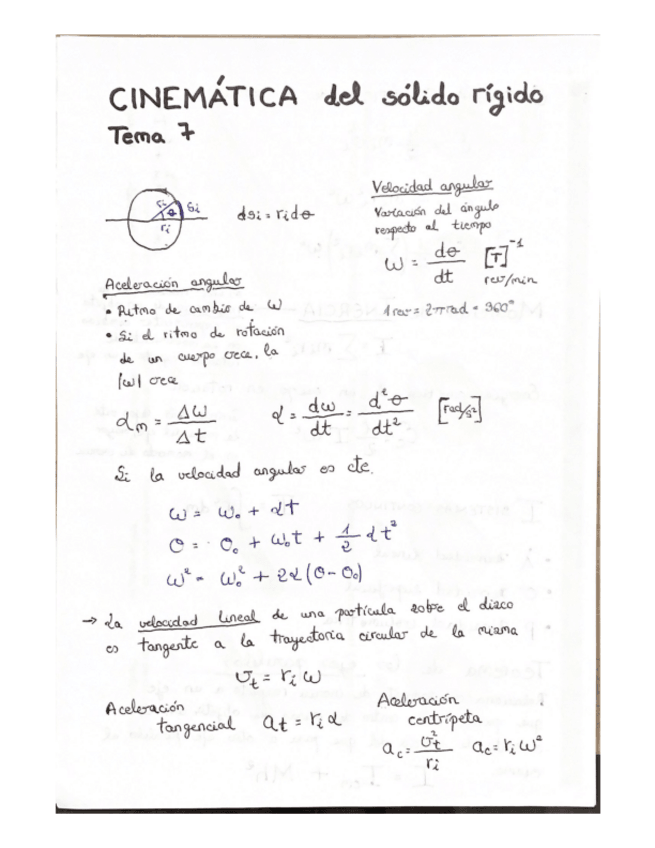 CINEMÁTICA del sólido rígido
Tema 7
ri
θ
Si
ri
dsi = ri dθ
Velocidad angular
Variación del ángulo
respecto al tiempo
ω = dθ/dt [T]⁻¹
rev/min
1 rev = 2π rad = 360°
Aceleración angular
• Ritmo de cambio de ω
• Si el ritmo de rotación
de un cuerpo crece, la
|ω| crece
αm = Δω/Δt α = dω/dt = d²θ/dt² [rad/s²]
Si la velocidad angular es cte.
ω = ω₀ + αt
θ = θ₀ + ω₀t + 1/2 αt²
ω² = ω₀² + 2α(θ-θ₀)
→ La velocidad lineal de una partícula sobre el disco
es tangente a la trayectoria circular de la misma
vt = ri ω
Aceleración
tangencial at = ri α
Aceleración
centrípeta
ac = vt²/ri ac = ri ω²